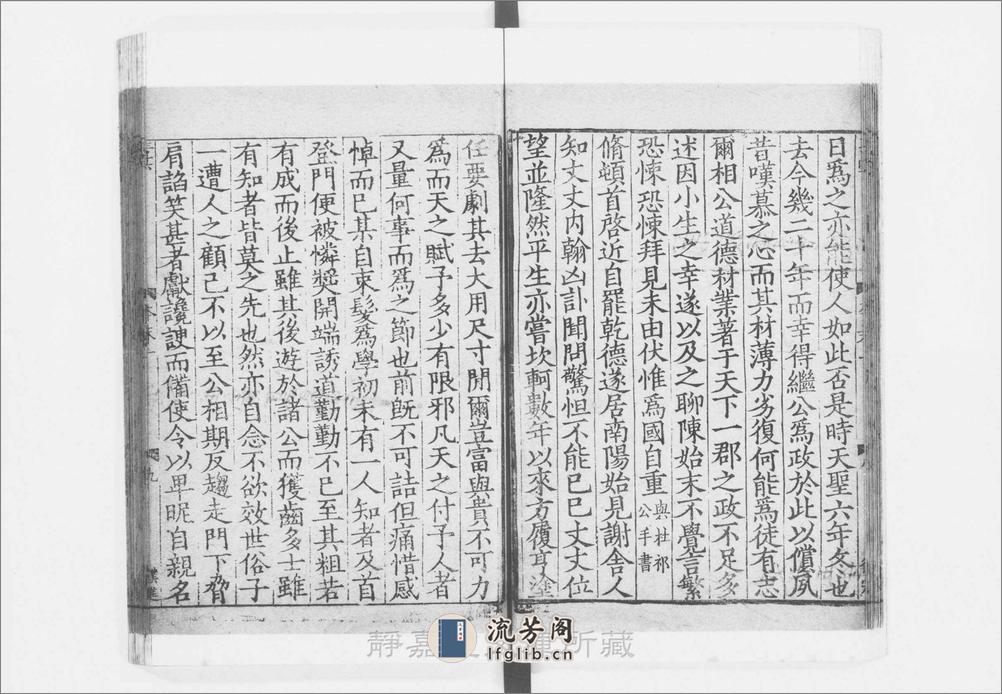 日爲之亦能使人如此否是時天聖六年冬也
去今幾二十年而幸得繼公爲政於此以償夙
昔嘆慕之心而其材薄力劣復何能爲徒有志
爾相公道德材業著于天下一郡之政不足多
述因小生之幸遂以及之聊陳始末不覺言繁
恐悚恐悚拜見未由伏惟爲國自重與杜祁公手書
脩頓首啓近自罷乾德遂居南陽始見謝舍人
知丈丈内翰凶訃聞問驚怛不能已已丈丈位
望並隆然平生亦嘗坎軻數年以來方履亨塗
任要劇其去大用尺寸閒爾豈富與貴不可力
爲而天之賦予多少有限邪凡天之付予人者
又量何事而爲之節也前旣不可詰但痛惜感
悼而已某自束髮爲學初未有一人知者及首
登門便被憐奬開端誘道勤勤不已至其粗若
有成而後止雖其後遊於諸公而獲齒多士雖
有知者皆莫之先也然亦自念不欲效世俗子
一遭人之顧己不以至公相期反趨走門下脅
肩諂笑甚者獻讒諛而備使令以卑昵自親名
九
靜嘉
所藏
流芳阁
lfglib.cn